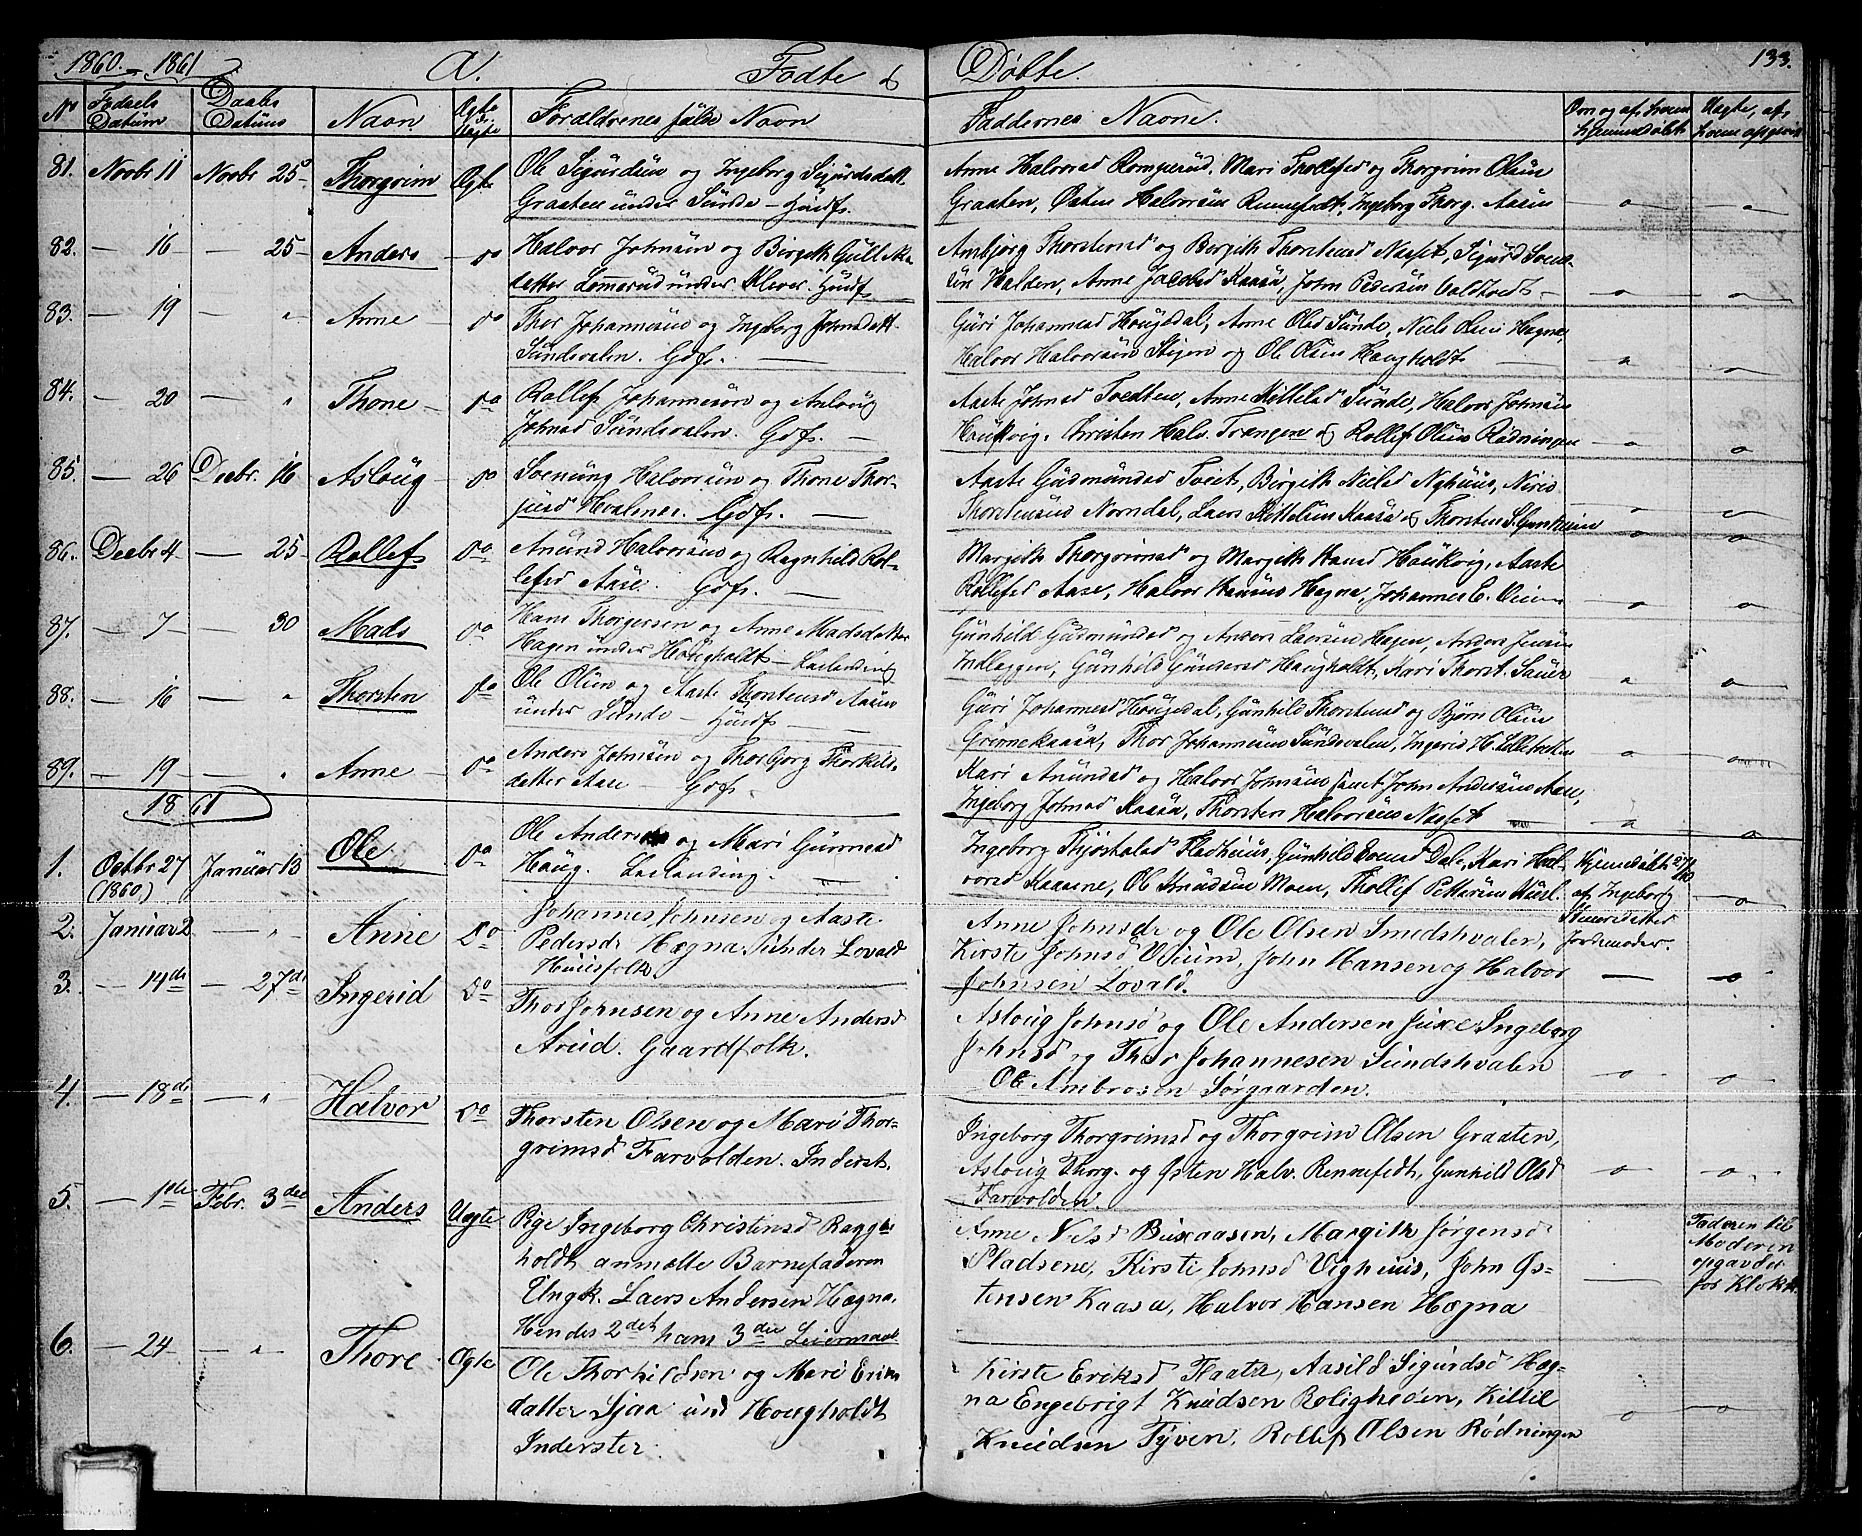 1860. - 1861
A.
Fødte &
Døbte.
133.
No
Fødsels Datum
Daabs Datums
Navn
Ægte Uægte
Forældrenes fulde Navn
Faddernes Navne.
Om og af hvem hjemmedøbt
81. Novbr 11 Novbr 25 Thorgrim Ægte Ole Sigurdsen og Ingeborg Sigurdsdatt.
Graaten under Sunde - Husf.
Anne Halvorsd Romperud, Mari Thollefsd og Thorgrim Olsen
Graaten, Østen Halvorsen Rennefedt, Ingeborg Thorg. Aasen
82. - 16 - 25 Anders - do Halvor Johnsen og Birgith
datter Lomerud under Klever. Husf.
Ambjørg Thorstensd og Bergith Thorstensd Næset, Sigurd Svend-
sen Halden, Anne Jacobsd Kaasa, John Pedersen
83. - 19 - " Anne do Thor Johannesen og Ingeborg Johnsdatt.
Sundsvalen. Gdf.
Guri Johannesd Hougsdal, Anne Olsd Sunde, Niels Olsen Hægna,
Halvor Halvorsen Stijen og Ole Olsen Haugholdt
84. - 20 - " Thone - do Rollef Johannesøn og Asloug
Johnsd Sundsvalen. Gdf.
Aaste Johnsd Tvedten, Anne Kittelsd Sunde, Halvor Johnsen
Haukvig, Christen Halv. Trangen & Rollef Olsen Rødningen
85. - 26 Decbr. 16 Asloug - do Svenung Halvorsen og Thone Thor-
jusd Hvalenes. Gdf.
Aaste Gudmundsd Tveit, Birgith Nielsd Nyhuus, Niels
Thorstensens Norndal, Laers Kittelsen Kaasa & Thorsten
86. Decbr 4 - 25 Rollef do Anund Halvorsens og Ragnhild Rol-
lefsd Aase. Gdf.
Margith Thorgrimsd og Margith Hansd Haukvig, Aaste
Rollefsd Aase, Halvor Hansens Hægna, Johannes
87. - 7 - 30 Mads do Hans Thorgersen og Anne Madsdatter
Hagen under Hougholdt - Leilending
Gunhild Gudmundsd og Anders Laersen Hagen, Anders Jensen
Indlæggen, Gunhild Gundersd Haugholdt, Kari Thorst. Sauer
88. - 16 - " Thorsten do Ole Olsen og Aaste Thorstensd Aasen
under Sunde - Husf.
Guri Johannesd Hougsdal, Gunhild Thorstensd og Bjørn Olsen
Grinnekaasa, Thor Johannesens Sundsvalen, Ingerid H.
89. - 19 - " Anne - do Anders Johnsen og Thorbjorg Thorkils-
datter Aase - Gdf.
Kari Anundsd og Halvor Johnsens samt John Andersens Aase,
Ingeborg Johnsd Kaasa, Thorsten Halvorsens Næset
1861
1. Octbr 27 Januar 13 Ole do Ole Andersen og Mari Gunnersd
(1860) Haug. Leilending.
Ingeborg Thjøstolsd Fladhuus, Gunhild Svensd Dale, Kari Hal-
vorsd Kaasene, Ole Knudsen Moen, Thollef Pettersen Huusl.
Hjemmedøbt 27/10
af Ingeborg
Steuersdatter
Jordemoder.
2. Januar 2 - " - Anne Do Johannes Johnsen og Aaste
Pedersdr Hægna under Lovald
Huusfolk.
Anne Johnsdr og Ole Olsen Smedshvalen,
Kirste Johnsd Vseum, John Hansen og Halvor
Johnsen Lovald.
3. - 14de - 27de Ingerid Do Thor Jornsen og Anne Andersd
Areid. Gaardfolk.
Asloug Johnsd og Ole Andersen Juxe Ingeborg
Johnsd og Thor Johannesen Sundshvalen
Ole Ambrosen Sørgaarden.
4. - 18de - " - Halvor Do Thorsten Olsen og Mari Thor-
grimsd Farvolden. Inderst.
Ingeborg Thorgrimsd og Thorgrim Olsen Graaten,
Asloug Thorg. og Østen Halv. Rennefedt, Gunhild Olsd
Farvolden.
5. - 1ste Febr. 3die Anders Uægte Pige Ingeborg Christensd Bagge-
holdt anmælte Barnefaderen
Ungk. Laers Andersen Hægna.
Hendes 2det hans 3die Leiermaal
Anne Nilsd Buxaasen, Margith Jørgensd
Pladsene, Kirsti Johnsd Veghuus, John Øs-
tensen Kaasa, Halvor Hansen Hægna
Faderen til
Moderen
opgavdes
for Klokk.
6. - 24 - " - Thore Ægte Ole Thorkildsen og Mari Eriks
datter Sjaa und Hougholdt
Inderster.
Kirste Eriksd Flaata, Aasild Sigurdsd Hæg-
na Engebrigt Knudsen Roligheden, Kittil
Knudsen Tyven, Rollef Olsen Rødningen